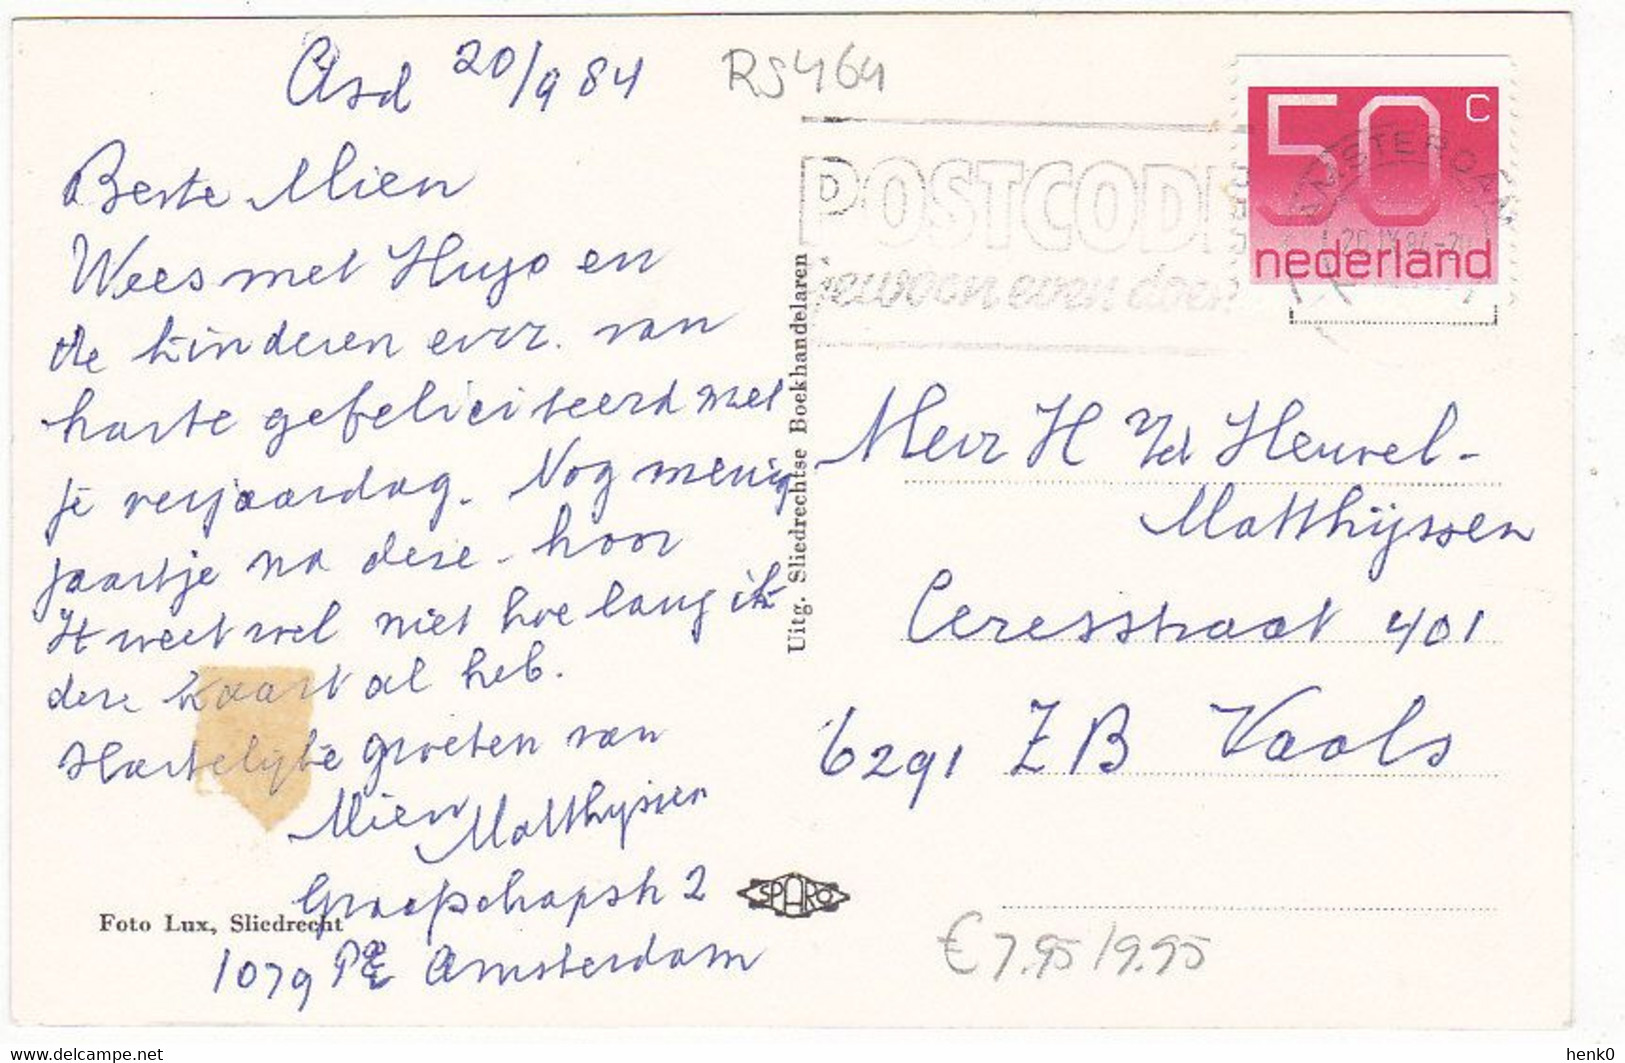 Asd 20/9 84
RS464
Beste Mien
Wees met Hugo en
de kinderen enz. van
harte gefeliciteerd met
je verjaardag. Nog menig
jaartje na deze hoor
Ik weet wel niet hoe lang ik
deze kaart al heb.
Hartelijke groeten van
Mien Matthijssen
2
1079 Amsterdam
Foto Lux, Sliedrecht
Uitg. Sliedrechtse Boekhandelaren
SPARO
POSTCODE
gewoon even doen
AMSTERDAM
20 IX 84
50 c
nederland
Mevr H Vd Heuvel-
Matthijssen
Ceresstraat 401
6291 ZB Vaals
€ 7.95 / 9.95
delcampe.net
henk0